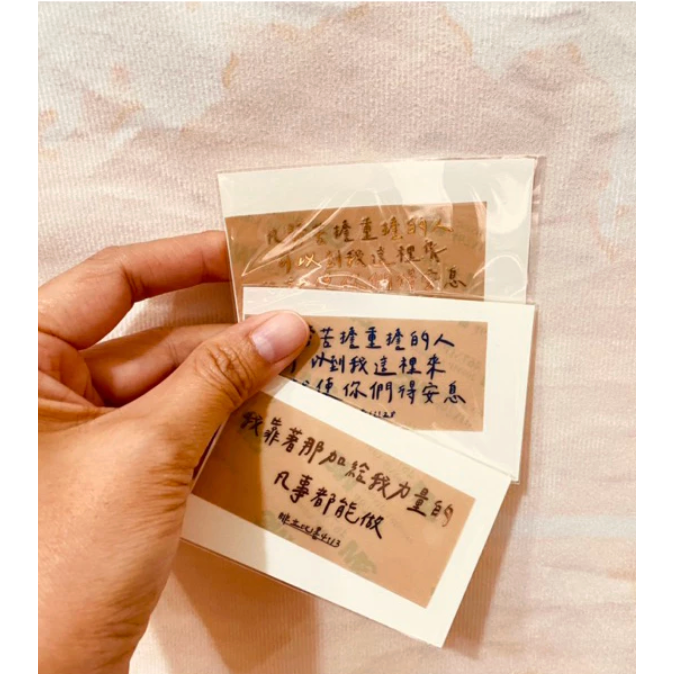 凡勞苦擔重擔的人
可以到我這裡來
息
苦擔重擔的人
可以到我這裡來
使你們得安息
11:28
我靠著那加給我力量的
凡事都能做
腓立比書4:13